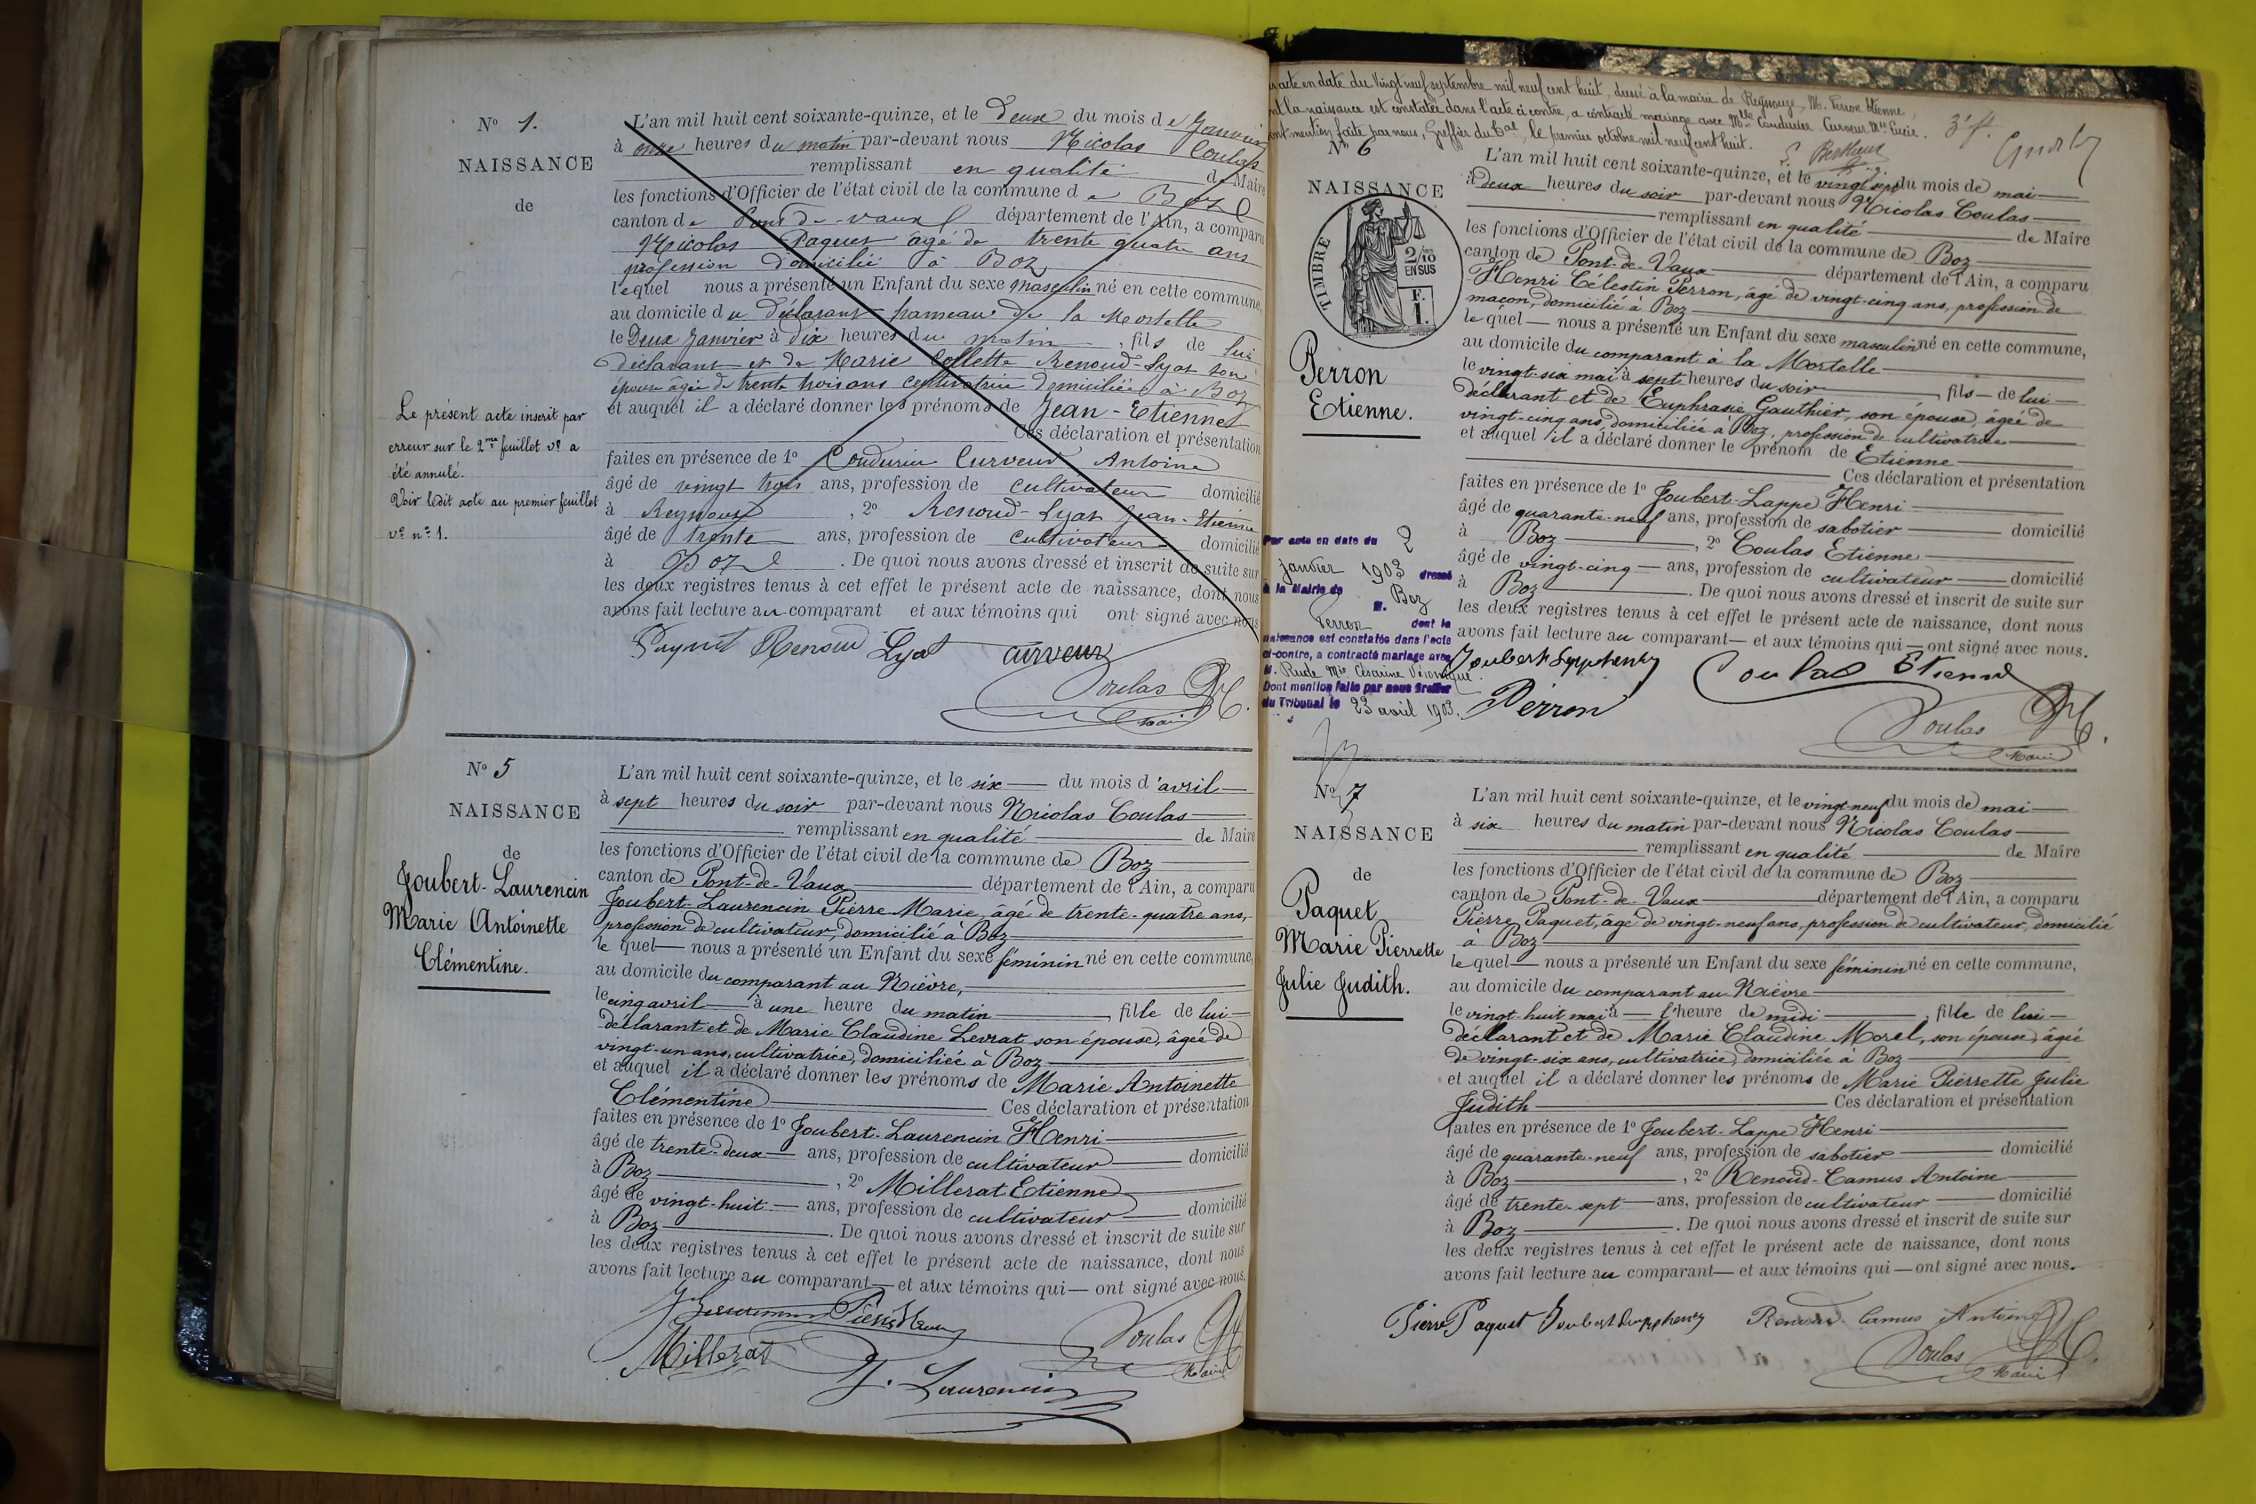 N° 1.
NAISSANCE
de
Le présent acte inscrit par
erreur sur le 2me feuillet v° a
été annulé.
Voir ledit acte au premier feuillet
v° n° 1.
L'an mil huit cent soixante-quinze, et le Deux du mois de Janvier
à onze heures du matin par-devant nous Nicolas Coulas
remplissant en qualité de Maire
les fonctions d'Officier de l'état civil de la commune de Boz
canton de Pont-de-vaux département de l'Ain, a comparu
Nicolas Paquet âgé de trente quatre ans
profession domicilié à Boz
lequel nous a présenté un Enfant du sexe masculin né en cette commune,
au domicile du déclarant hameau de la Mortelle
le Deux Janvier à dix heures du matin, fils de lui
déclarant et de Marie Collette Renoud-Lyat son
épouse âgée de trente trois ans cultivatrice domiciliée à Boz
et auquel il a déclaré donner les prénoms de Jean-Etienne
Ces déclaration et présentation
faites en présence de 1° Condurier Curveur Antoine
âgé de vingt trois ans, profession de cultivateur domicilié
à Reyssouze, 2° Renoud-Lyat Jean-Etienne
âgé de trente ans, profession de cultivateur domicilié
à Boz. De quoi nous avons dressé et inscrit de suite sur
les deux registres tenus à cet effet le présent acte de naissance, dont nous
avons fait lecture au comparant et aux témoins qui ont signé avec nous
Paquet Renoud Lyat Curveur
Coulas
Maire
N° 5
NAISSANCE
de
Joubert-Laurencin
Marie Antoinette
Clémentine.
L'an mil huit cent soixante-quinze, et le six du mois d'avril
à sept heures du soir par-devant nous Nicolas Coulas
remplissant en qualité de Maire
les fonctions d'Officier de l'état civil de la commune de Boz
canton de Pont-de-Vaux département de l'Ain, a comparu
Joubert-Laurencin Pierre Marie, âgé de trente-quatre ans,
profession de cultivateur, domicilié à Boz
le quel nous a présenté un Enfant du sexe féminin né en cette commune,
au domicile du comparant au Nièvre,
le cinq avril à une heure du matin, fille de lui
déclarant et de Marie Claudine Levrat son épouse, âgée de
vingt-un ans, cultivatrice, domiciliée à Boz
et auquel il a déclaré donner les prénoms de Marie Antoinette
Clémentine Ces déclaration et présentation
faites en présence de 1° Joubert-Laurencin Henri
âgé de trente-deux ans, profession de cultivateur domicilié
à Boz, 2° Millerat Etienne
âgé de vingt-huit ans, profession de cultivateur domicilié
à Boz. De quoi nous avons dressé et inscrit de suite sur
les deux registres tenus à cet effet le présent acte de naissance, dont nous
avons fait lecture au comparant et aux témoins qui ont signé avec nous.
Coulas
Millerat
Maire
J. Laurencin
acte en date du vingt neuf septembre mil neuf cent huit, dressé à la mairie de Reyssouze, M. Perron Etienne,
dont la naissance est constatée dans l'acte ci contre, a contracté mariage avec Mlle Condurier Curveur Mie Lucie.
Dont mention faite par nous, Greffier du Tal, le premier octobre mil neuf cent huit.
Berthieux
N° 6
NAISSANCE
TIMBRE
2/10
EN SUS
F.
1.
Perron
Etienne.
L'an mil huit cent soixante-quinze, et le vingt sept du mois de mai
à deux heures du soir par-devant nous Nicolas Coulas
remplissant en qualité de Maire
les fonctions d'Officier de l'état civil de la commune de Boz
canton de Pont-de-Vaux département de l'Ain, a comparu
Henri Célestin Perron, âgé de vingt-cinq ans, profession de
maçon, domicilié à Boz
le quel nous a présenté un Enfant du sexe masculin né en cette commune,
au domicile du comparant à la Mortelle
le vingt-six mai à sept heures du soir, fils de lui
déclarant et de Euphrasie Gauthier, son épouse, âgée de
vingt-cinq ans, domiciliée à Boz, profession de cultivatrice
et auquel il a déclaré donner le prénom de Etienne
Ces déclaration et présentation
faites en présence de 1° Joubert-Lappe Henri
âgé de quarante-neuf ans, profession de sabotier domicilié
à Boz, 2° Coulas Etienne
âgé de vingt-cinq ans, profession de cultivateur domicilié
à Boz. De quoi nous avons dressé et inscrit de suite sur
les deux registres tenus à cet effet le présent acte de naissance, dont nous
avons fait lecture au comparant et aux témoins qui ont signé avec nous.
Par acte en date du 2
janvier 1903 dressé
à la Mairie de Boz
M.
Perron dont la
naissance est constatée dans l'acte
ci-contre, a contracté mariage avec
M. Rude Mie Césarine Véronique
Dont mention faite par nous Greffier
du Tribunal le 23 avril 1903.
Coulas Etienne
Perron
Coulas
Maire
N° 7
NAISSANCE
de
Paquet
Marie Pierrette
Julie Judith.
L'an mil huit cent soixante-quinze, et le vingt-neuf du mois de mai
à six heures du matin par-devant nous Nicolas Coulas
remplissant en qualité de Maire
les fonctions d'Officier de l'état civil de la commune de Boz
canton de Pont-de-Vaux département de l'Ain, a comparu
Pierre Paquet, âgé de vingt-neuf ans, profession de cultivateur, domicilié
à Boz
le quel nous a présenté un Enfant du sexe féminin né en cette commune,
au domicile du comparant au Nièvre
le vingt-huit mai à l'heure de midi, fille de lui
déclarant et de Marie Claudine Morel, son épouse, âgée
de vingt-six ans, cultivatrice, domiciliée à Boz
et auquel il a déclaré donner les prénoms de Marie Pierrette Julie
Judith Ces déclaration et présentation
faites en présence de 1° Joubert-Lappe Henri
âgé de quarante-neuf ans, profession de sabotier domicilié
à Boz, 2° Renoud-Camus Antoine
âgé de trente-sept ans, profession de cultivateur domicilié
à Boz. De quoi nous avons dressé et inscrit de suite sur
les deux registres tenus à cet effet le présent acte de naissance, dont nous
avons fait lecture au comparant et aux témoins qui ont signé avec nous.
Pierre Paquet Renoud Camus Antoine
Coulas
Maire